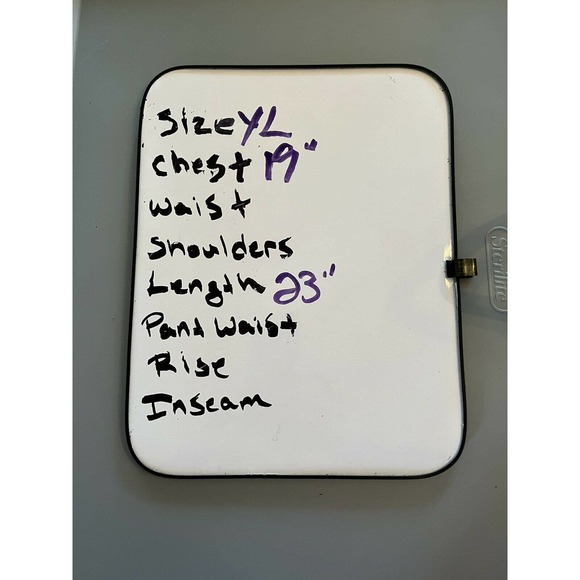 Size YL
Chest 19"
Waist
Shoulders
Length 23"
Pant Waist
Rise
Inseam
Sterilite